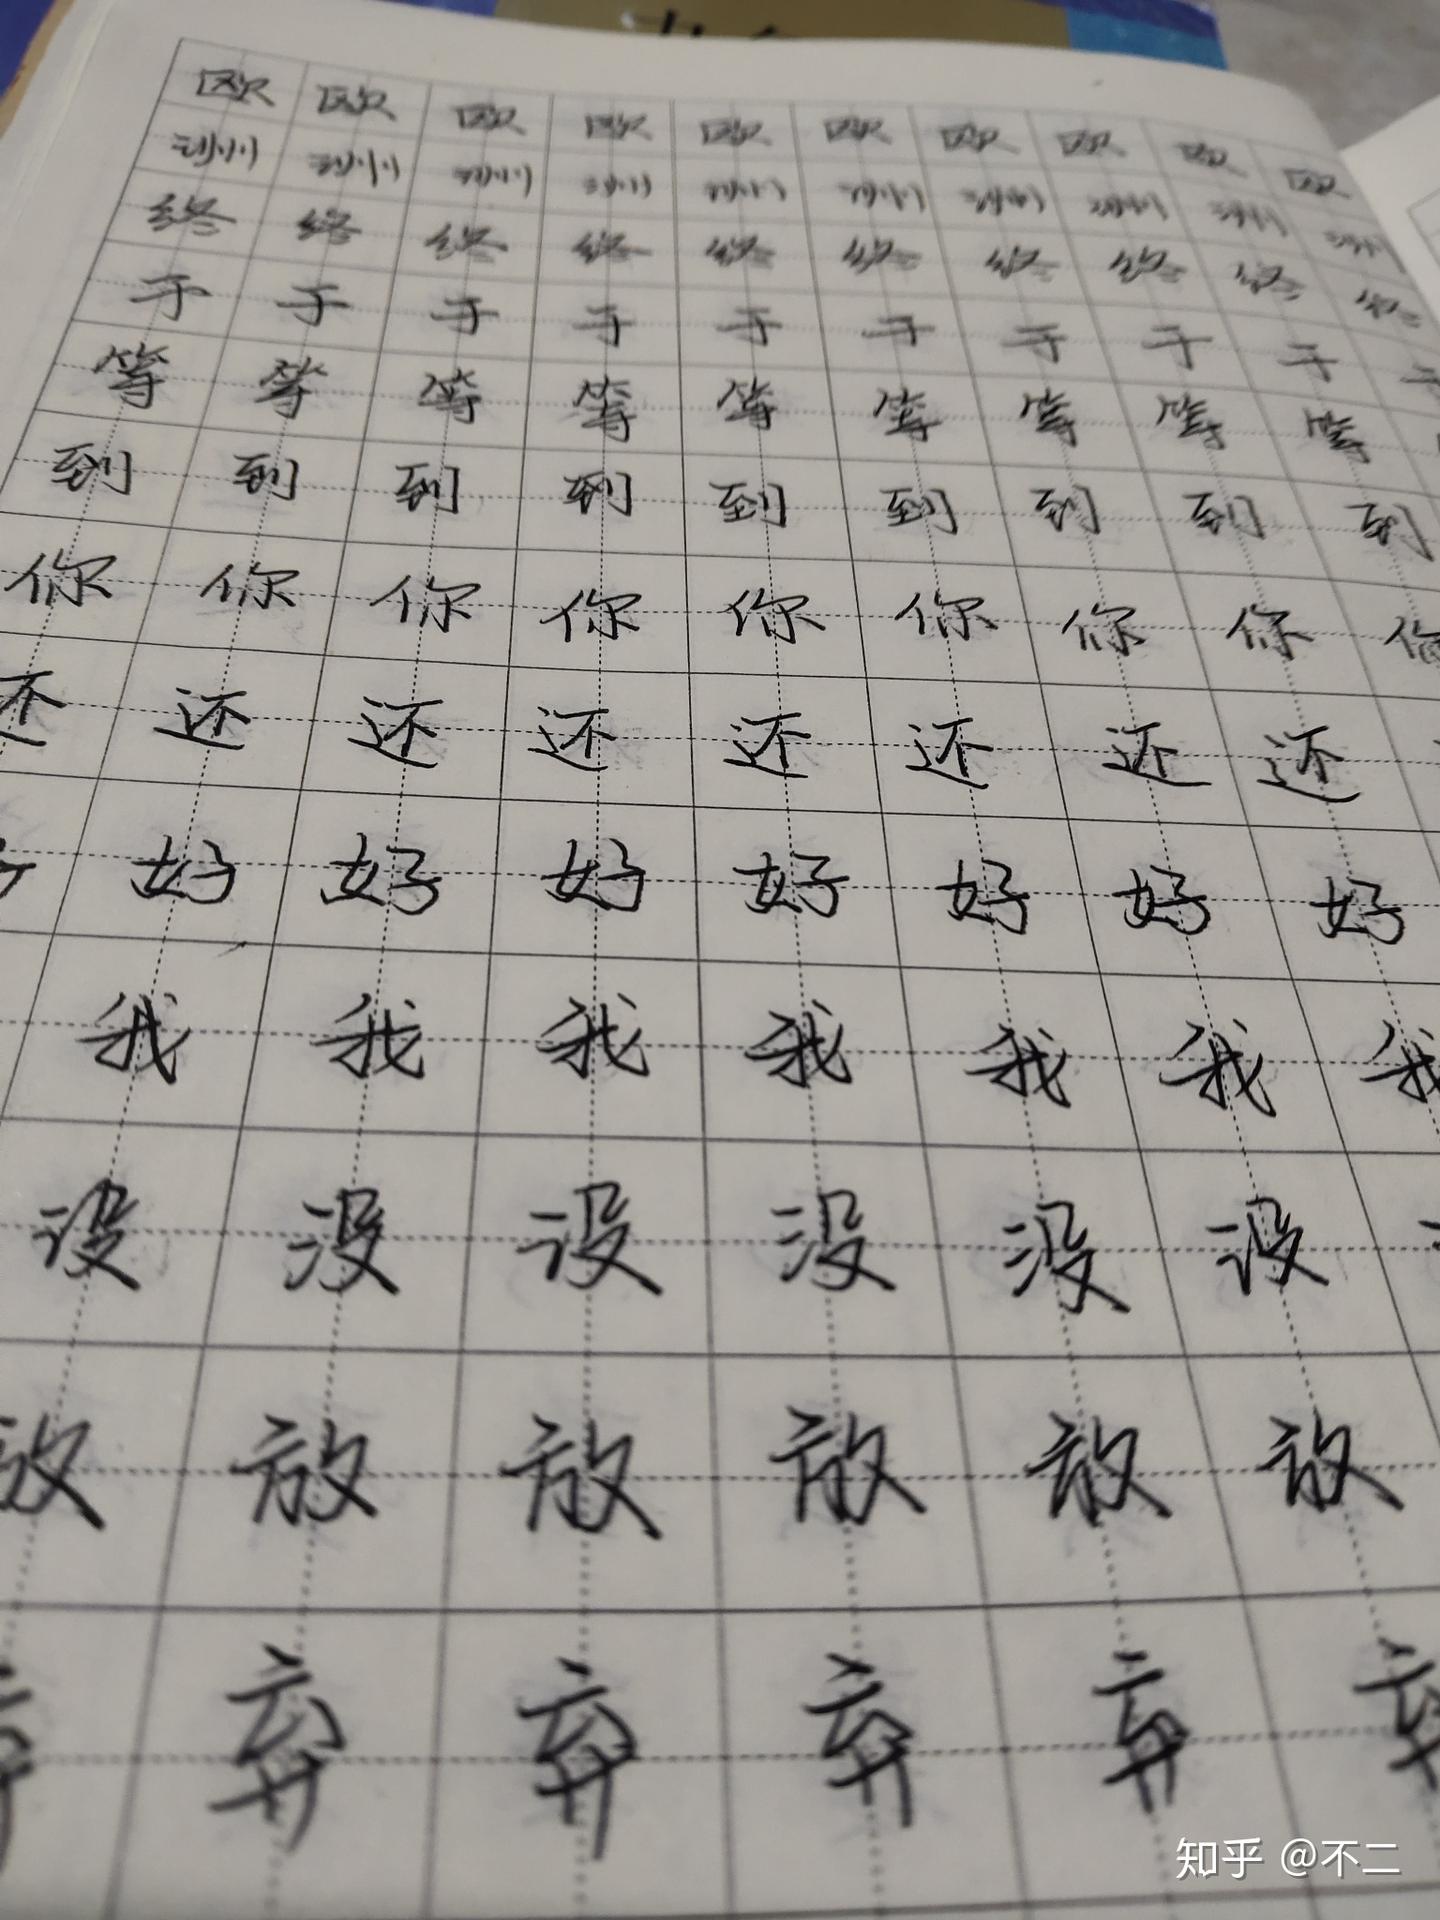 欧 欧 欧 欧 欧 欧 欧 欧 欧 欧
洲 洲 洲 洲 洲 洲 洲 洲 洲 洲
终 终 终 终 终 终 终 终 终 终
于 于 于 于 于 于 于 于 于 于
等 等 等 等 等 等 等 等 等
到 到 到 到 到 到 到 到 到
你 你 你 你 你 你 你 你 你
还 还 还 还 还 还 还 还
好 好 好 好 好 好 好
我 我 我 我 我 我 我
没 没 没 没 没 没
放 放 放 放 放 放
弃 弃 弃 弃 弃
知乎 @不二